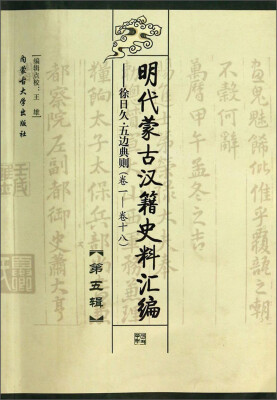 明代蒙古汉籍史料汇编
——徐日久·五边典则（卷一——卷十八）
【第五辑】
编辑点校：王 雄
内蒙古大学出版社
不穀何解
萬曆甲午孟冬
太子太保兵部
都察院左副都御史蕭大亨